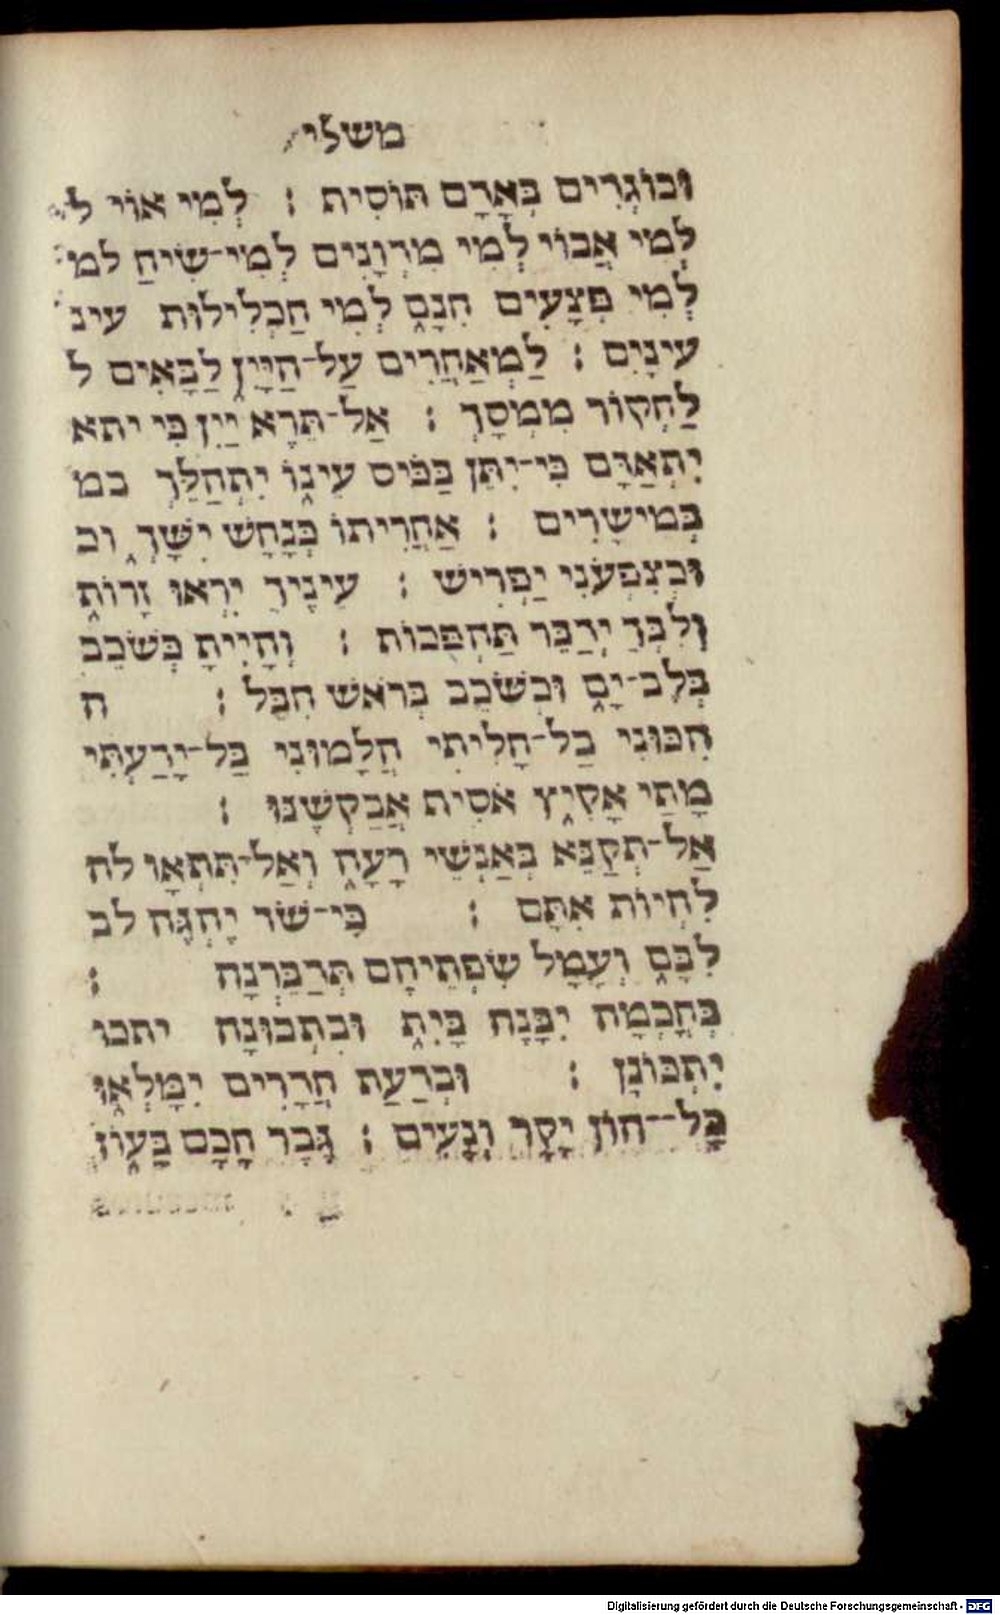 משלי
וּבוֹגְדִים בְּאָדָם תּוֹסִיף ׃ לְמִי אוֹי ל
לְמִי אֲבוֹי לְמִי מִדְוָנִים לְמִי־שִׂיחַ למ
לְמִי פְּצָעִים חִנָּם לְמִי חַכְלִילוּת עינ
עינָיִם ׃ לַמְאַחֲרִים עַל־הַיָּיִן לַבָּאִים ל
לַחְקוֹר מִמְסָךְ ׃ אַל־תֵּרֶא יַיִן כִּי יתא
יִתְאַדָּם כִּי־יִתֵּן בַּכִּיס עֵינוֹ יִתְהַלֵּךְ במ
בְּמישָׁרִים ׃ אַחֲרִיתוֹ כְּנָחָשׁ יִשָּׁךְ וכ
וּכְצִפְעֹנִי יַפְרִישׁ ׃ עֵינֶיךָ יִרְאוּ זָרוֹת
וְלִבְּךָ יְדַבֵּר תַּהְפֻּכוֹת ׃ וְהָיִיתָ כְּשֹׁכֵב
בְּלֶב־יָם וּכְשֹׁכֵב בְּרֹאשׁ חִבֵּל ׃ ה
הִכּוּנִי בַל־חָלִיתִי הֲלָמוּנִי בַּל־יָדַעְתִּי
מָתַי אָקִיץ אֹסִיף אֲבַקְשֶׁנּוּ ׃
אַל־תְּקַנֵּא בְּאַנְשֵׁי רָעָה וְאַל־תִּתְאָו לה
לִהְיוֹת אִתָּם ׃ כִּי־שֹׁד יֶהְגֶּה לב
לִבָּם וְעָמָל שִׂפְתֵיהֶם תְּדַבֵּרְנָה ׃
בְּחָכְמָה יִבָּנֶה בָּיִת וּבִתְבוּנָה יתכו
יִתְכּוֹנָן ׃ וּבְדַעַת חֲדָרִים יִמָּלְאוּ
כָּל־הוֹן יָקָר וְנָעִים ׃ גֶּבֶר חָכָם בַּעוֹז
Digitalisierung gefördert durch die Deutsche Forschungsgemeinschaft - DFG